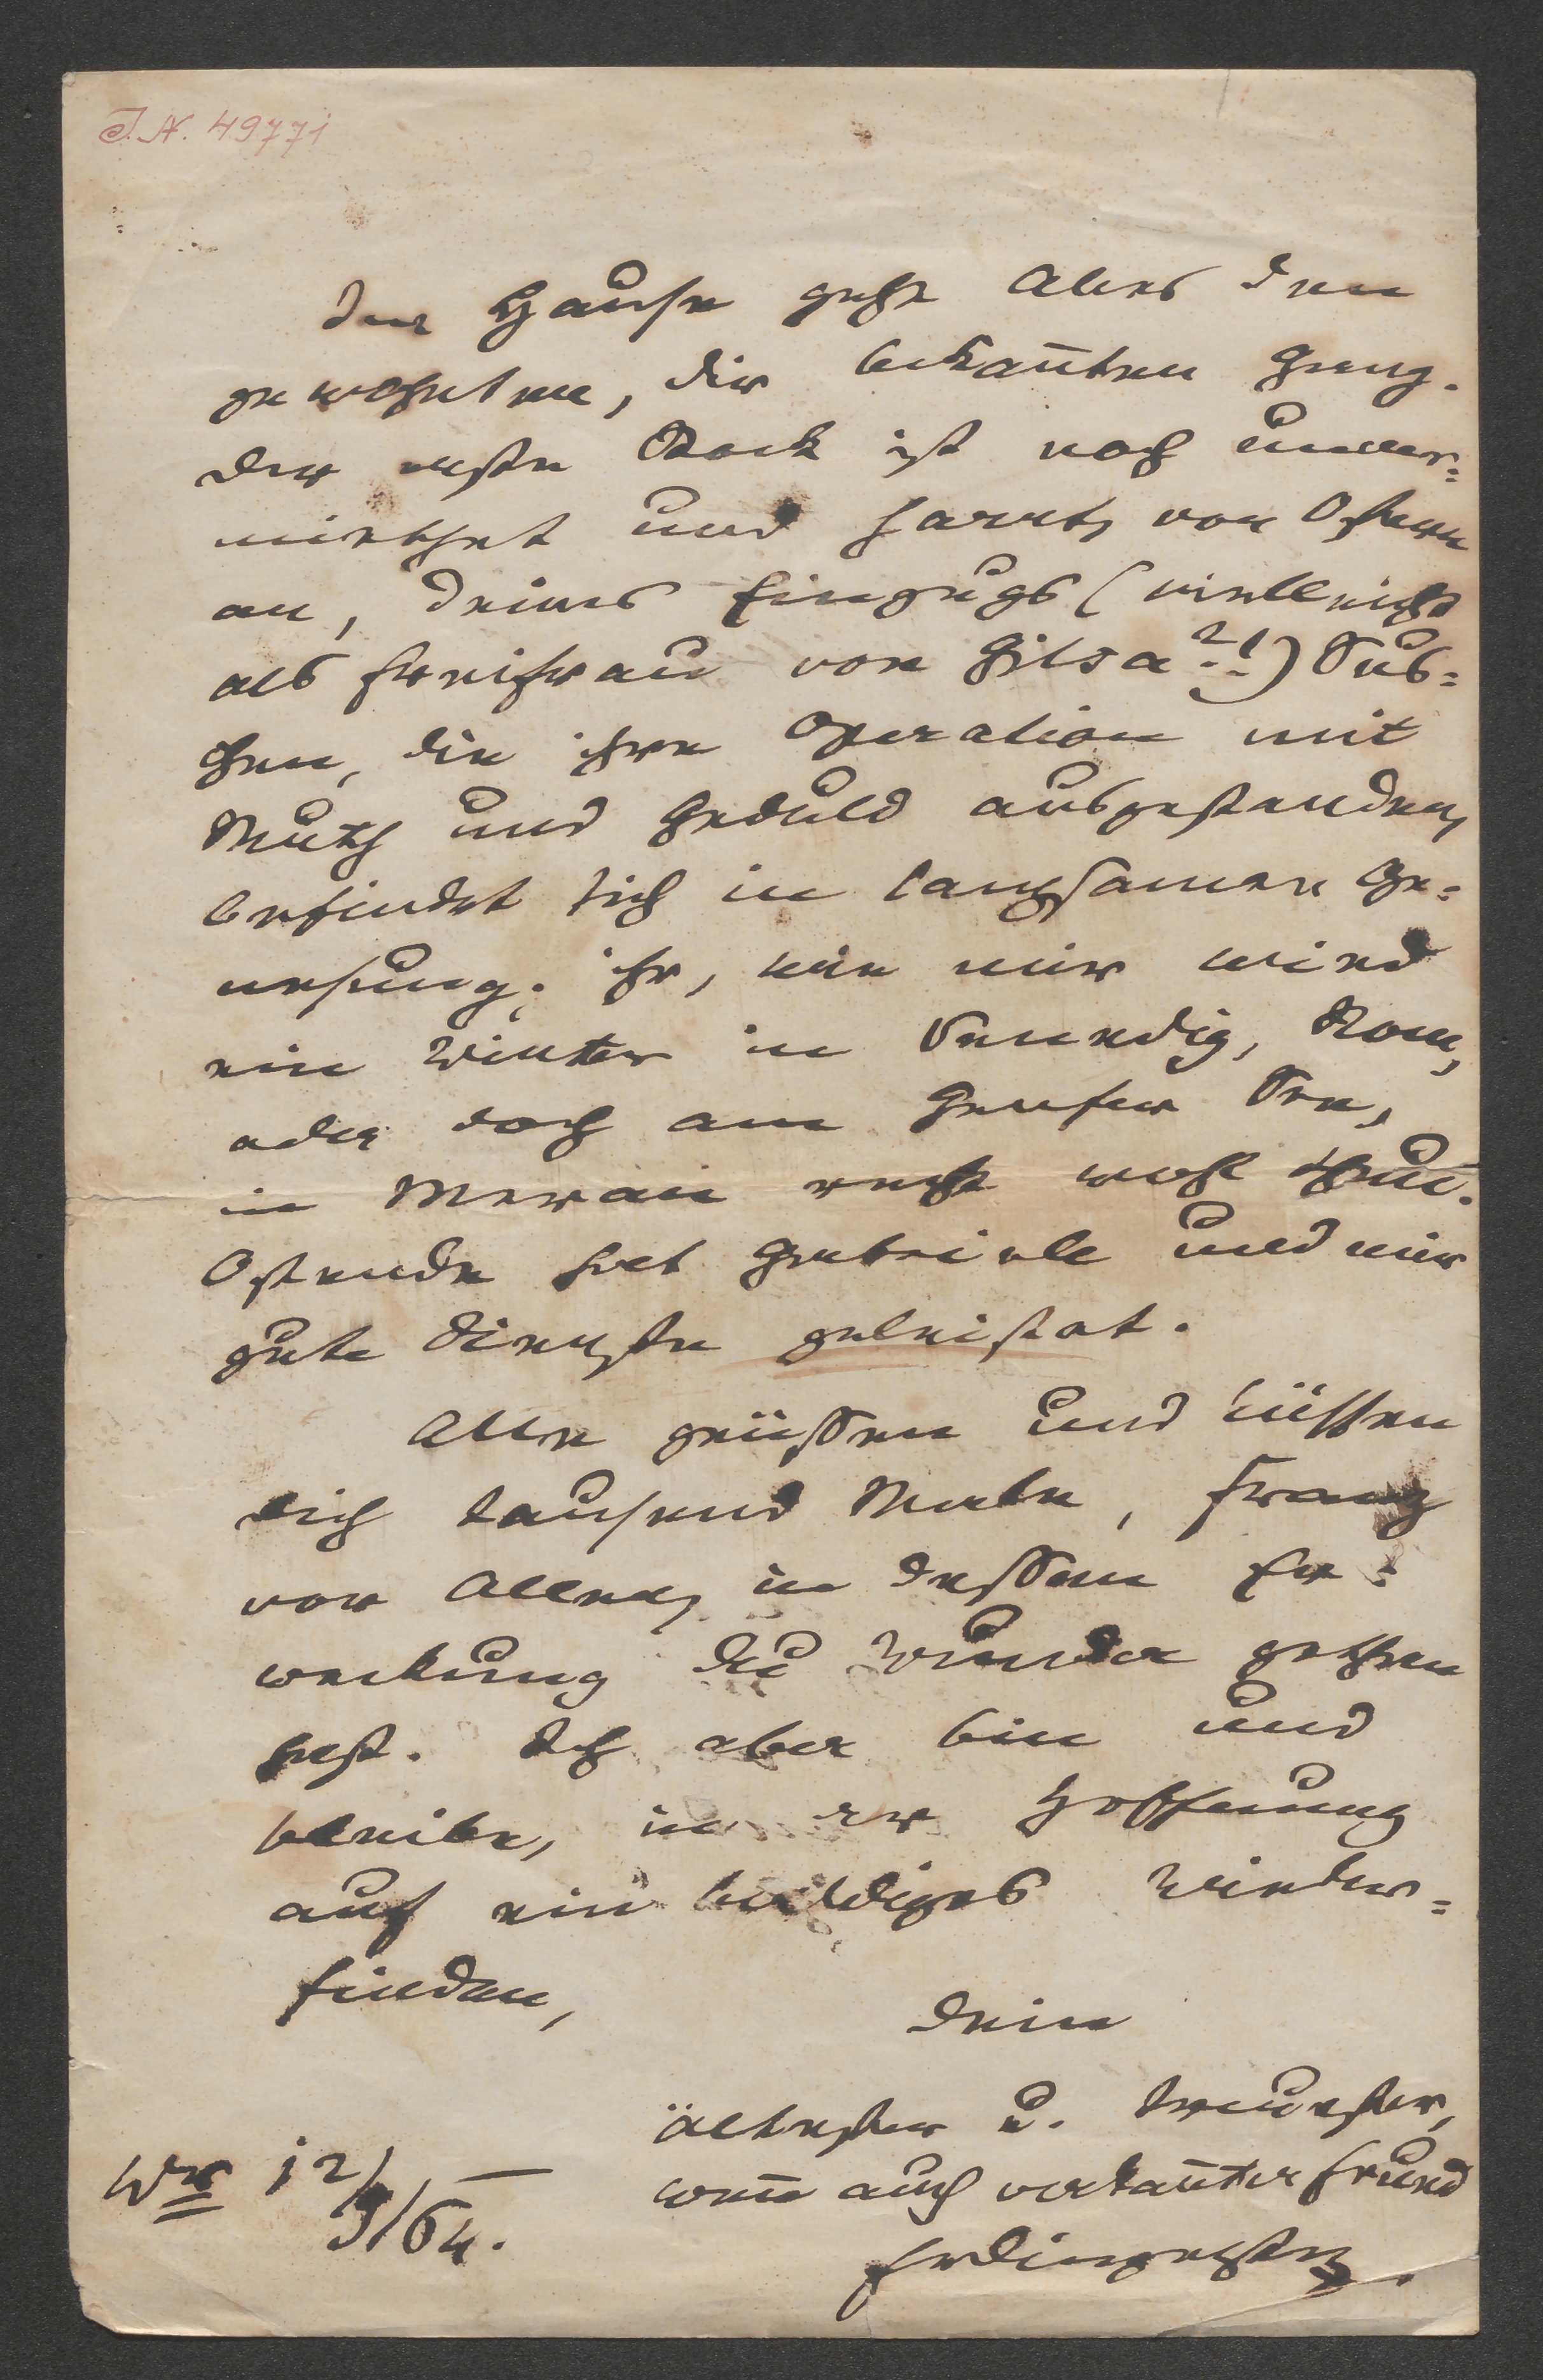 I.N. 49771
Im Hause geht Alles den
gewohnten, dir bekan̄ten Gang.
Der erste Stock ist noch unver=
miethet und harrt, von Ostern
an, deines Einzugs (vielleicht
als Freifrau von Gilsa?!) Sus=
chen, die ihre Operation mit
Muth und Geduld ausgestanden,
befindet sich in langsamer Ge=
nesung; ihr, wie mir wird
ein Winter in Venedig, Rom,
oder doch am Genfer See,
in Meran recht wohl thun.
Ostende hat Gabriele und mir
gute Dienste geleistet.
Alle grüßen und küssen
dich tausend Male, Franz
vor Allen, in dessen Er=
weckung du Wunder gethan
hast. Ich aber bin und
bleibe, in der Hoffnung
auf ein baldiges Wieder=
finden,
Dein
ältester u. treuester,
wen̄ auch verkan̄ter Freund
FrDingelstedt.
Wn 12/
9/64.